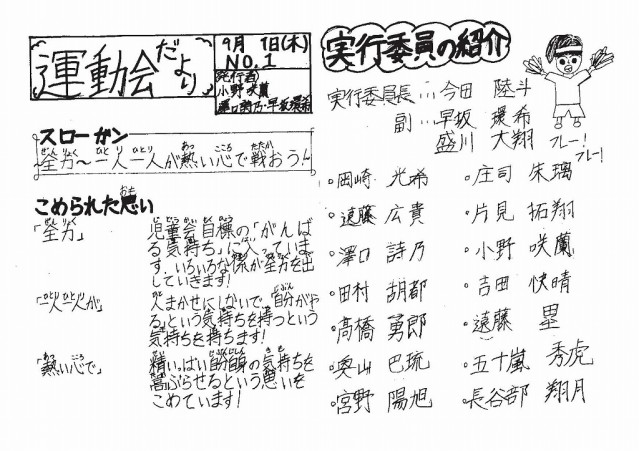 運動会だより
9月1日(木)
NO.1
発行者
小野咲蘭
澤口詩乃・早坂環希
スローガン
全力～一人一人が熱い心で戦おう～
こめられた思い
「全力」
児童会目標の「がんば
る気持ち」に入っていま
す。いろいろな係が全力を出
していきます!
「一人一人が」
人まかせにしないで、自分がや
る。という気持ちを持つという
気持ちを持ちます!
「熱い心で」
精いっぱい自分自身の気持ちを
高ぶらせるという思いを
こめています!
実行委員の紹介
実行委員長…今田 陸斗
副…早坂 環希
盛川 大翔
フレー!
フレー!
。岡崎 光希
。庄司 朱璃
。遠藤 広貴
。片見 拓翔
。澤口 詩乃
。小野 咲蘭
。田村 胡都
。吉田 快晴
。高橋 勇郎
。遠藤 塁
。奥山 巴琉
。五十嵐 秀虎
。宮野 陽旭
。長谷部 翔月